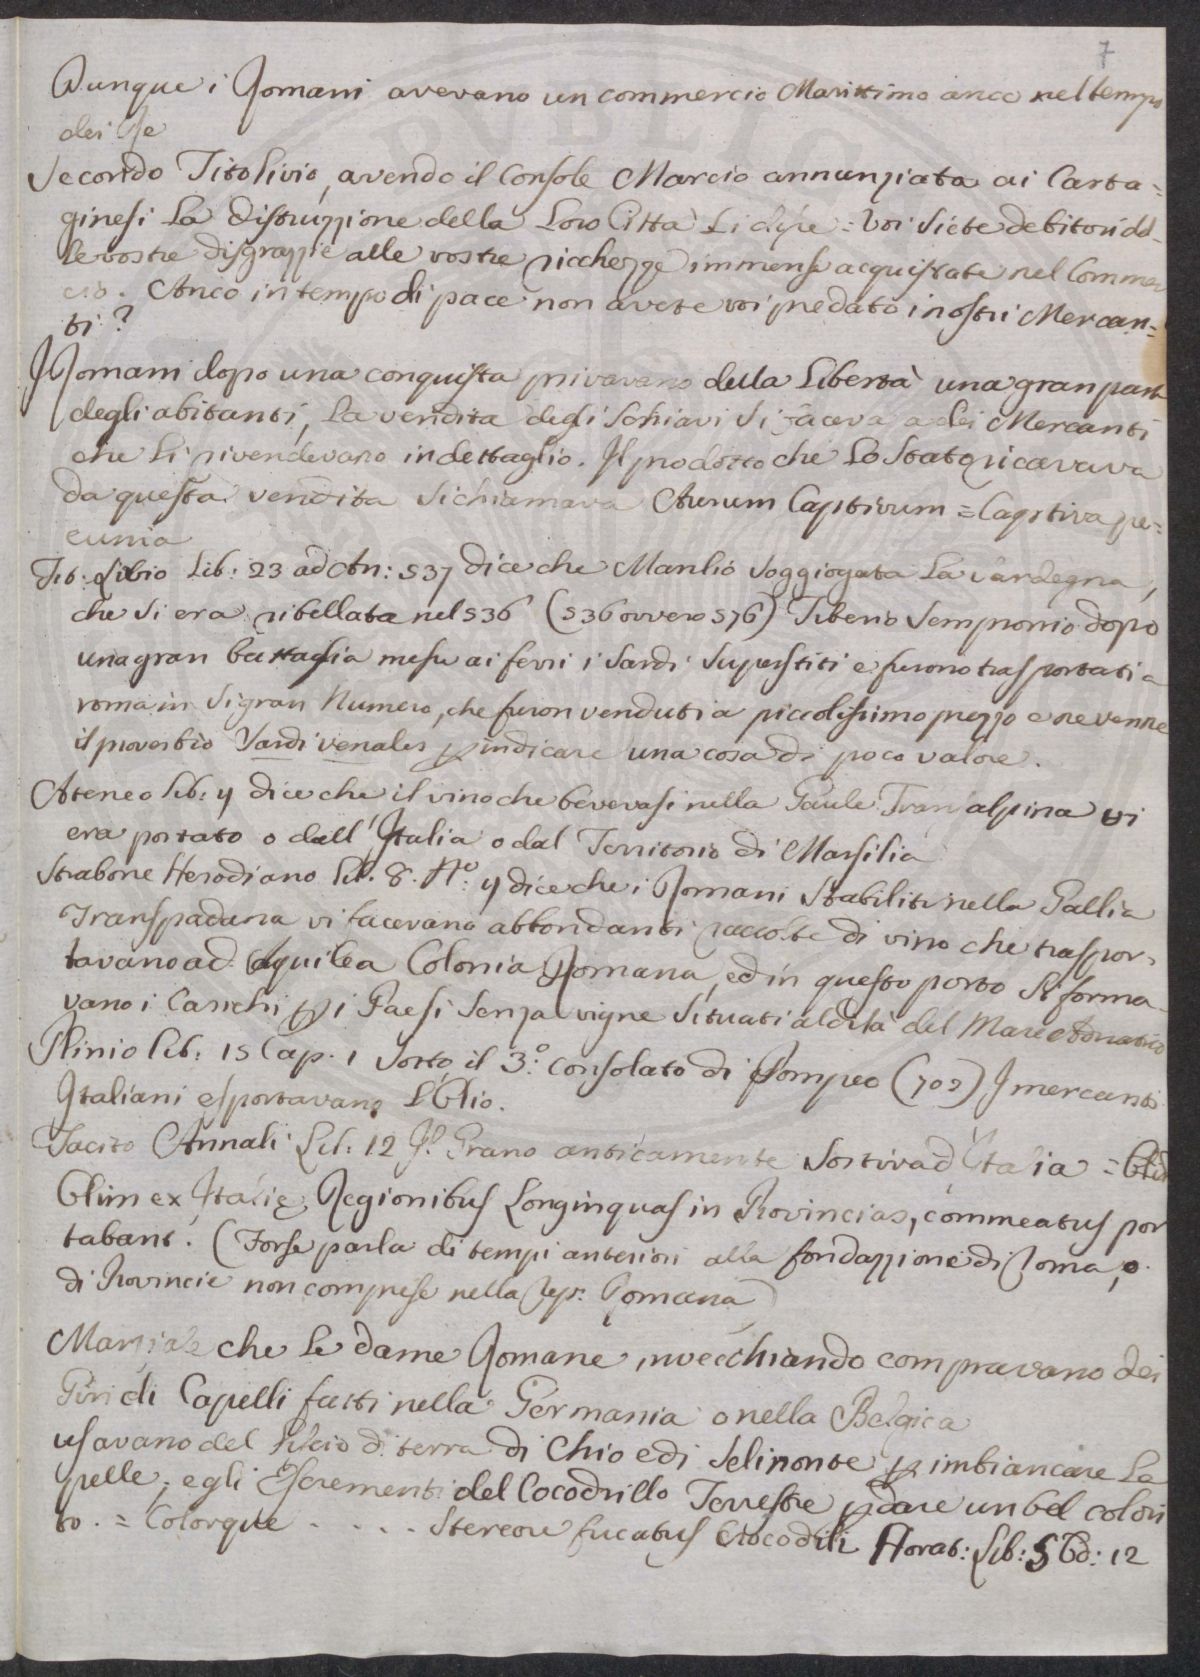 7
Dunque i Romani avevano un commercio Marittimo anco nel tempo
dei Re
Secondo Tito Livio, avendo il Console Marcio annunziata ai Carta=
ginesi La distruzzione della Loro Città Li disse = Voi Siete debitori del-
le vostre disgrazzie alle vostre ricchezze immense acquistate nel Commer
cio. Anco in tempo di pace non avete voi predato i nostri Mercan=
ti?
I Romani dopo una conquista privavano della Libertà una gran parte
degli abitanti, La vendita degli Schiavi Si faceva a dei Mercanti
che Li rivendevano in dettaglio. Il prodotto che Lo Stato ricavava
da questa vendita Si chiamava Aurum Captivum = Captiva pe=
cunia
Tit: Livio Lib: 23 ad An: 537 dice che Manlio Soggiogata La Sardegna,
che Si era ribellata nel 536 (536 ovvero 576) Tiberio Sempronio dopo
una gran battaglia messe ai ferri i Sardi Superstiti e furono trasportati a
roma in Si gran Numero, che furon venduti a piccolissimo prezzo e ne venne
il proverbio Sardi venales p indicare una cosa di poco valore.
Ateneo Lib: 4 dice che il vino che bevevasi nella Gaule Transalpina vi
era portato o dall'Italia o dal Territorio di Marsilia
Strabone Herodiano Lib. 8. No: 4 dice che i Romani Stabiliti nella Gallia
Transpadana vi facevano abbondanti raccolte di vino che traspor-
tavano ad Aquilea Colonia Romana, ed in questo porto Si forma-
vano i Carichi p i Paesi Senza vigne Situati al di là del Mare Adriatico
Plinio Lib: 15 Cap. 1 Sotto il 3.o Consolato di Pompeo (702) I mercanti
Italiani esportavano L'Olio.
Tacito Annali Lib: 12 Il Grano anticamente Sortiva d'Italia =
Olim ex Italię Regionibus Longinquas in Provincias, commeatus por
tabant. (Forse parla di tempi anteriori alla fondazzione di Roma, o
di Provincie non comprese nella Rep: Romana)
Marziale che Le dame Romane, invecchiando compravano dei
Giri di Capelli fatti nella Germania o nella Belgica
usavano del Liscio di terra di Chio e di Selinonte p imbiancare La
pelle; e gli Escrementi del Cocodrillo Terrestre p dare un bel colori
to. = Colorque . . . . Stercore fucatus Crocodili Horat: Lib: 5 Od: 12